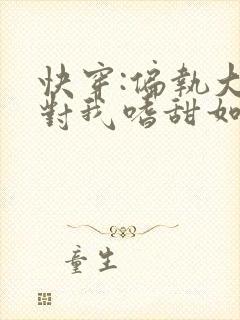 快穿:偏執大
對我嗜甜如
童生